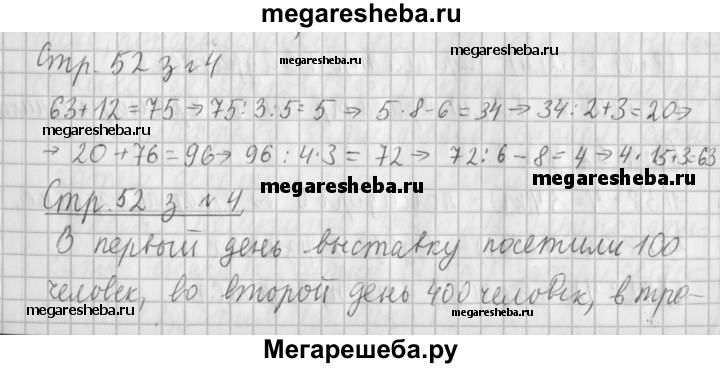 megaresheba.ru
Стр. 52 з №4
megaresheba.ru
63+12=75 → 75:3:5=5 → 5·8-6=34 → 34:2+3=20 →
megaresheba.ru
megaresheba.ru
→ 20+76=96 → 96:4·3=72 → 72:6-8=4 → 4·15+3=63
megaresheba.ru
megaresheba.ru
Стр. 52 з. №4
В первый день выставку посетили 100
человек, во второй день 400 человек, в тре-
megaresheba.ru
megaresheba.ru
Мегарешеба.ру